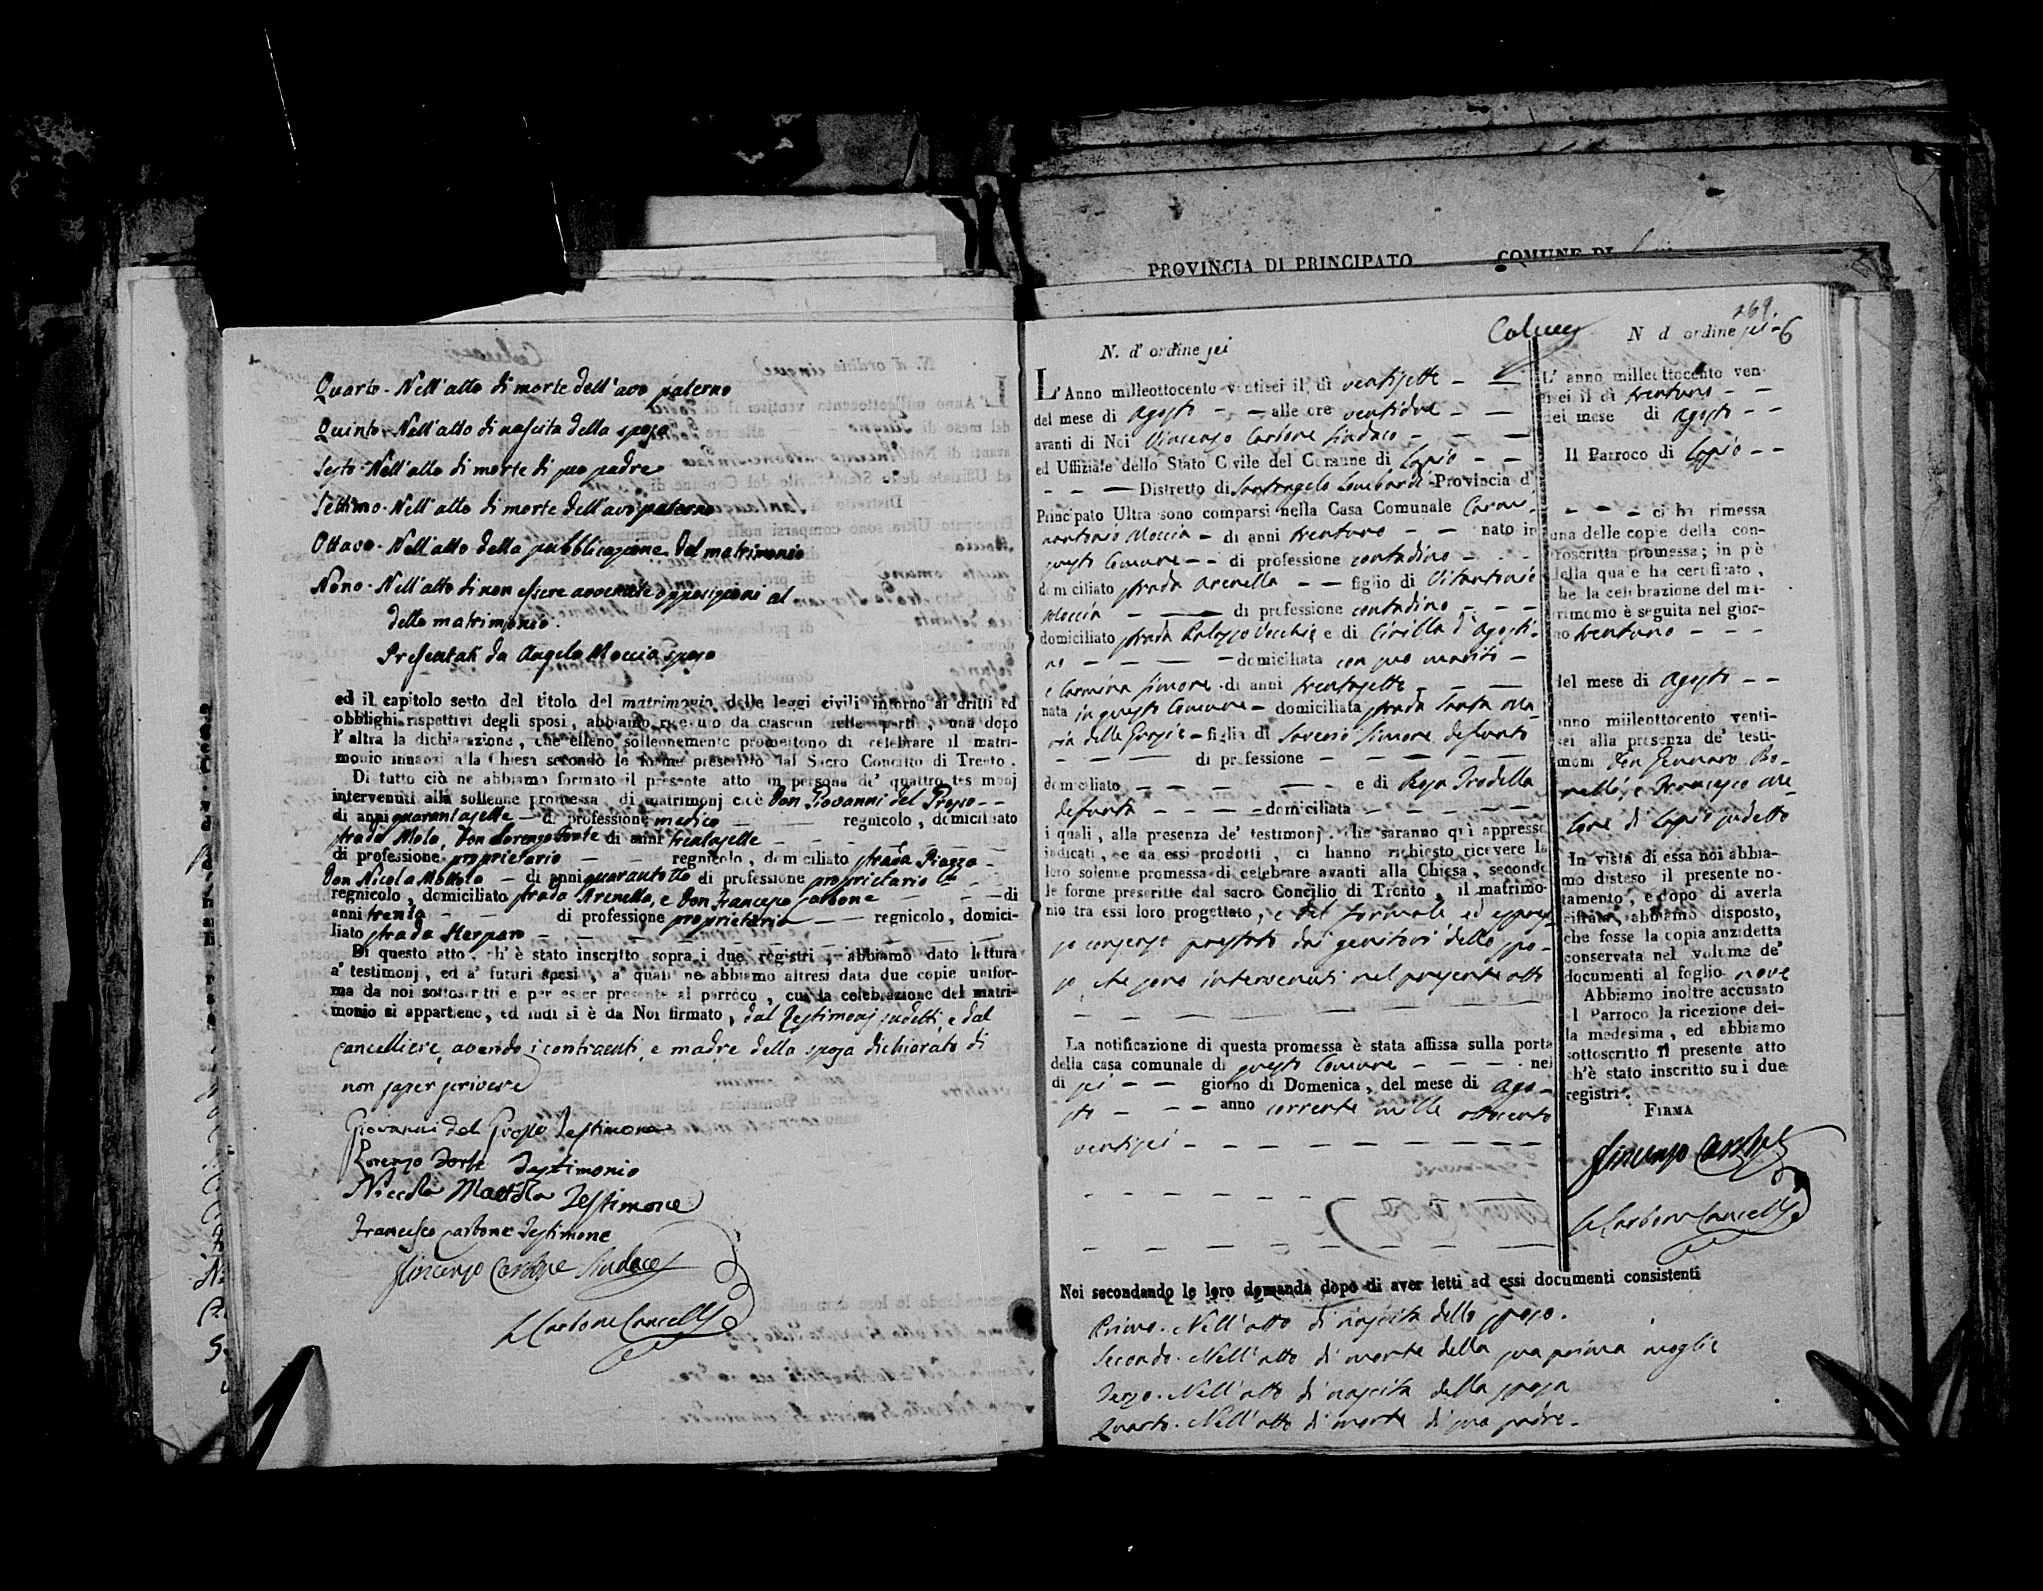 Quarto - Nell'atto di morte dell'avo paterno
Quinto - Nell'atto di nascita della sposa
Sesto - Nell'atto di morte di suo padre
Settimo - Nell'atto di morte dell'avo paterno
Ottavo - Nell'atto della pubblicazione del matrimonio
Nono - Nell'atto di non essere avvenute opposizioni al
detto matrimonio.
Presentati da Angelo Moccia sposo
ed il capitolo sesto del titolo del matrimonio delle leggi civili intorno ai dritti ed
obblighi rispettivi degli sposi, abbiamo ricevuto da ciascun delle parti, una dopo
l'altra la dichiarazione, che elleno sollennemente promettono di celebrare il matri-
monio innanzi alla Chiesa secondo le forme prescritto dal Sacro Concilto di Trento.
Di tutto ciò ne abbiamo formato il presente atto in persona de' quattro testimonj
intervenuti alla sollenne promessa di matrimonj cioè Don Giovanni del Grosso - -
di anni quarantasette - di professione medico - regnicolo, domiciliato
strada Molo, Don Lorenzo Forte di anni trentasette - -
di professione proprietario - - regnicolo, domiciliato strada Piazza -
Don Nicola Mottola - di anni quarantotto di professione proprietario
regnicolo, domiciliato strada Arenella, e Don Francesco Carbone - - di
anni trenta - - di professione proprietario - regnicolo, domici-
liato strada
Di questo atto, ch'è stato inscritto sopra i due registri, abbiamo dato lettura
a' testimonj, ed a' futuri sposi, a' quali ne abbiamo altresì data due copie unifor-
ma da noi sottoscritti e per esser presente al parroco, cui la celebrazione del matri-
monio si appartiene, ed indi si è da Noi firmato, dal Testimonj sudetti, e dal
cancelliere, avendo i contraenti, e madre della sposa dichiarato di
non saper scrivere
Giovanni del Grosso Testimone
Lorenzo Forte Testimonio
Niccola Mottola Testimone
Francesco Carbone Testimone
Vincenzo Carbone Sindaco
Carbone Cancell.
PROVINCIA DI PRINCIPATO COMUNE DI
N. d'ordine sei
L'Anno milleottocento ventisei il dì ventisette - -
del mese di Agosto - - alle ore ventidue - -
avanti di Noi Vincenzo Carbone Sindaco - - -
ed Uffiziale dello Stato Civile del Comune di Lapio - -
- - - Distretto di Santangelo Lombardi Provincia d'
Principato Ultra sono comparsi nella Casa Comunale Carmi-
nantonio Moccia - di anni trentuno - - nato in
questo Comune - - di professione contadino - - -
domiciliato strada Arenella - - figlio di Vitantonio
Moccia - - di professione contadino - - -
domiciliato strada Palazzo Vecchio e di Cirilla d'Agosti-
no - - - - domiciliata con suo marito -
e Carmina Simone di anni trentasette - - -
nata in questo Comune - domiciliata strada Santa Ma-
ria delle Grazie - figlia di Saverio Simone defunto
- - - - di professione - - - - -
domiciliato - - - - - e di Rosa Trodella
defunta - - - domiciliata - - - - -
i quali, alla presenza de' testimonj, che saranno quì appresso
indicati, e da essi prodotti, ci hanno richiesto ricevere la
loro solenne promessa di celebrare avanti alla Chiesa, secondo
le forme prescritte dal sacro Concilio di Trento, il matrimo-
nio tra essi loro progettato, e del formale ed espres-
so consenso prestato dai genitori dello spo-
so, che sono intervenuti nel presente atto
La notificazione di questa promessa è stata affissa sulla porta
della casa comunale di questo Comune - - - nel
di sei - - giorno di Domenica, del mese di Ago-
sto - - - anno corrente mille ottocento
ventisei - - - - - - - - -
Noi secondando le loro domanda dopo di aver letti ad essi documenti consistenti
Primo - Nell'atto di nascita dello sposo.
Secondo - Nell'atto di morte della sua prima moglie
Terzo - Nell'atto di nascita della sposa
Quarto - Nell'atto di morte di suo padre -
N d'ordine sei - 6
L'anno milleottocento ven-
tisei il dì trentuno - -
del mese di Agosto - -
Il Parroco di Lapio - -
- - - - ci ha rimessa
una delle copie della con-
troscritta promessa; in piè
della quale ha certificato,
che la celebrazione del ma-
trimonio è seguita nel gior-
no trentuno - - -
del mese di Agosto - -
anno milleottocento venti-
sei alla presenza de' testi-
moni Don Gennaro Ro-
e Francesco
di Lapio sudetto
In vista di essa noi abbia-
mo disteso il presente no-
tamento, e dopo di averla
cifrata, abbiamo disposto,
che fosse la copia anzidetta
conservata nel volume de'
documenti al foglio nove
Abbiamo inoltre accusato
al Parroco la ricezione del-
la medesima, ed abbiamo
sottoscritto il presente atto
ch'è stato inscritto su i due
registri.
FIRMA
Vincenzo Carbone
Carbone Cancell.